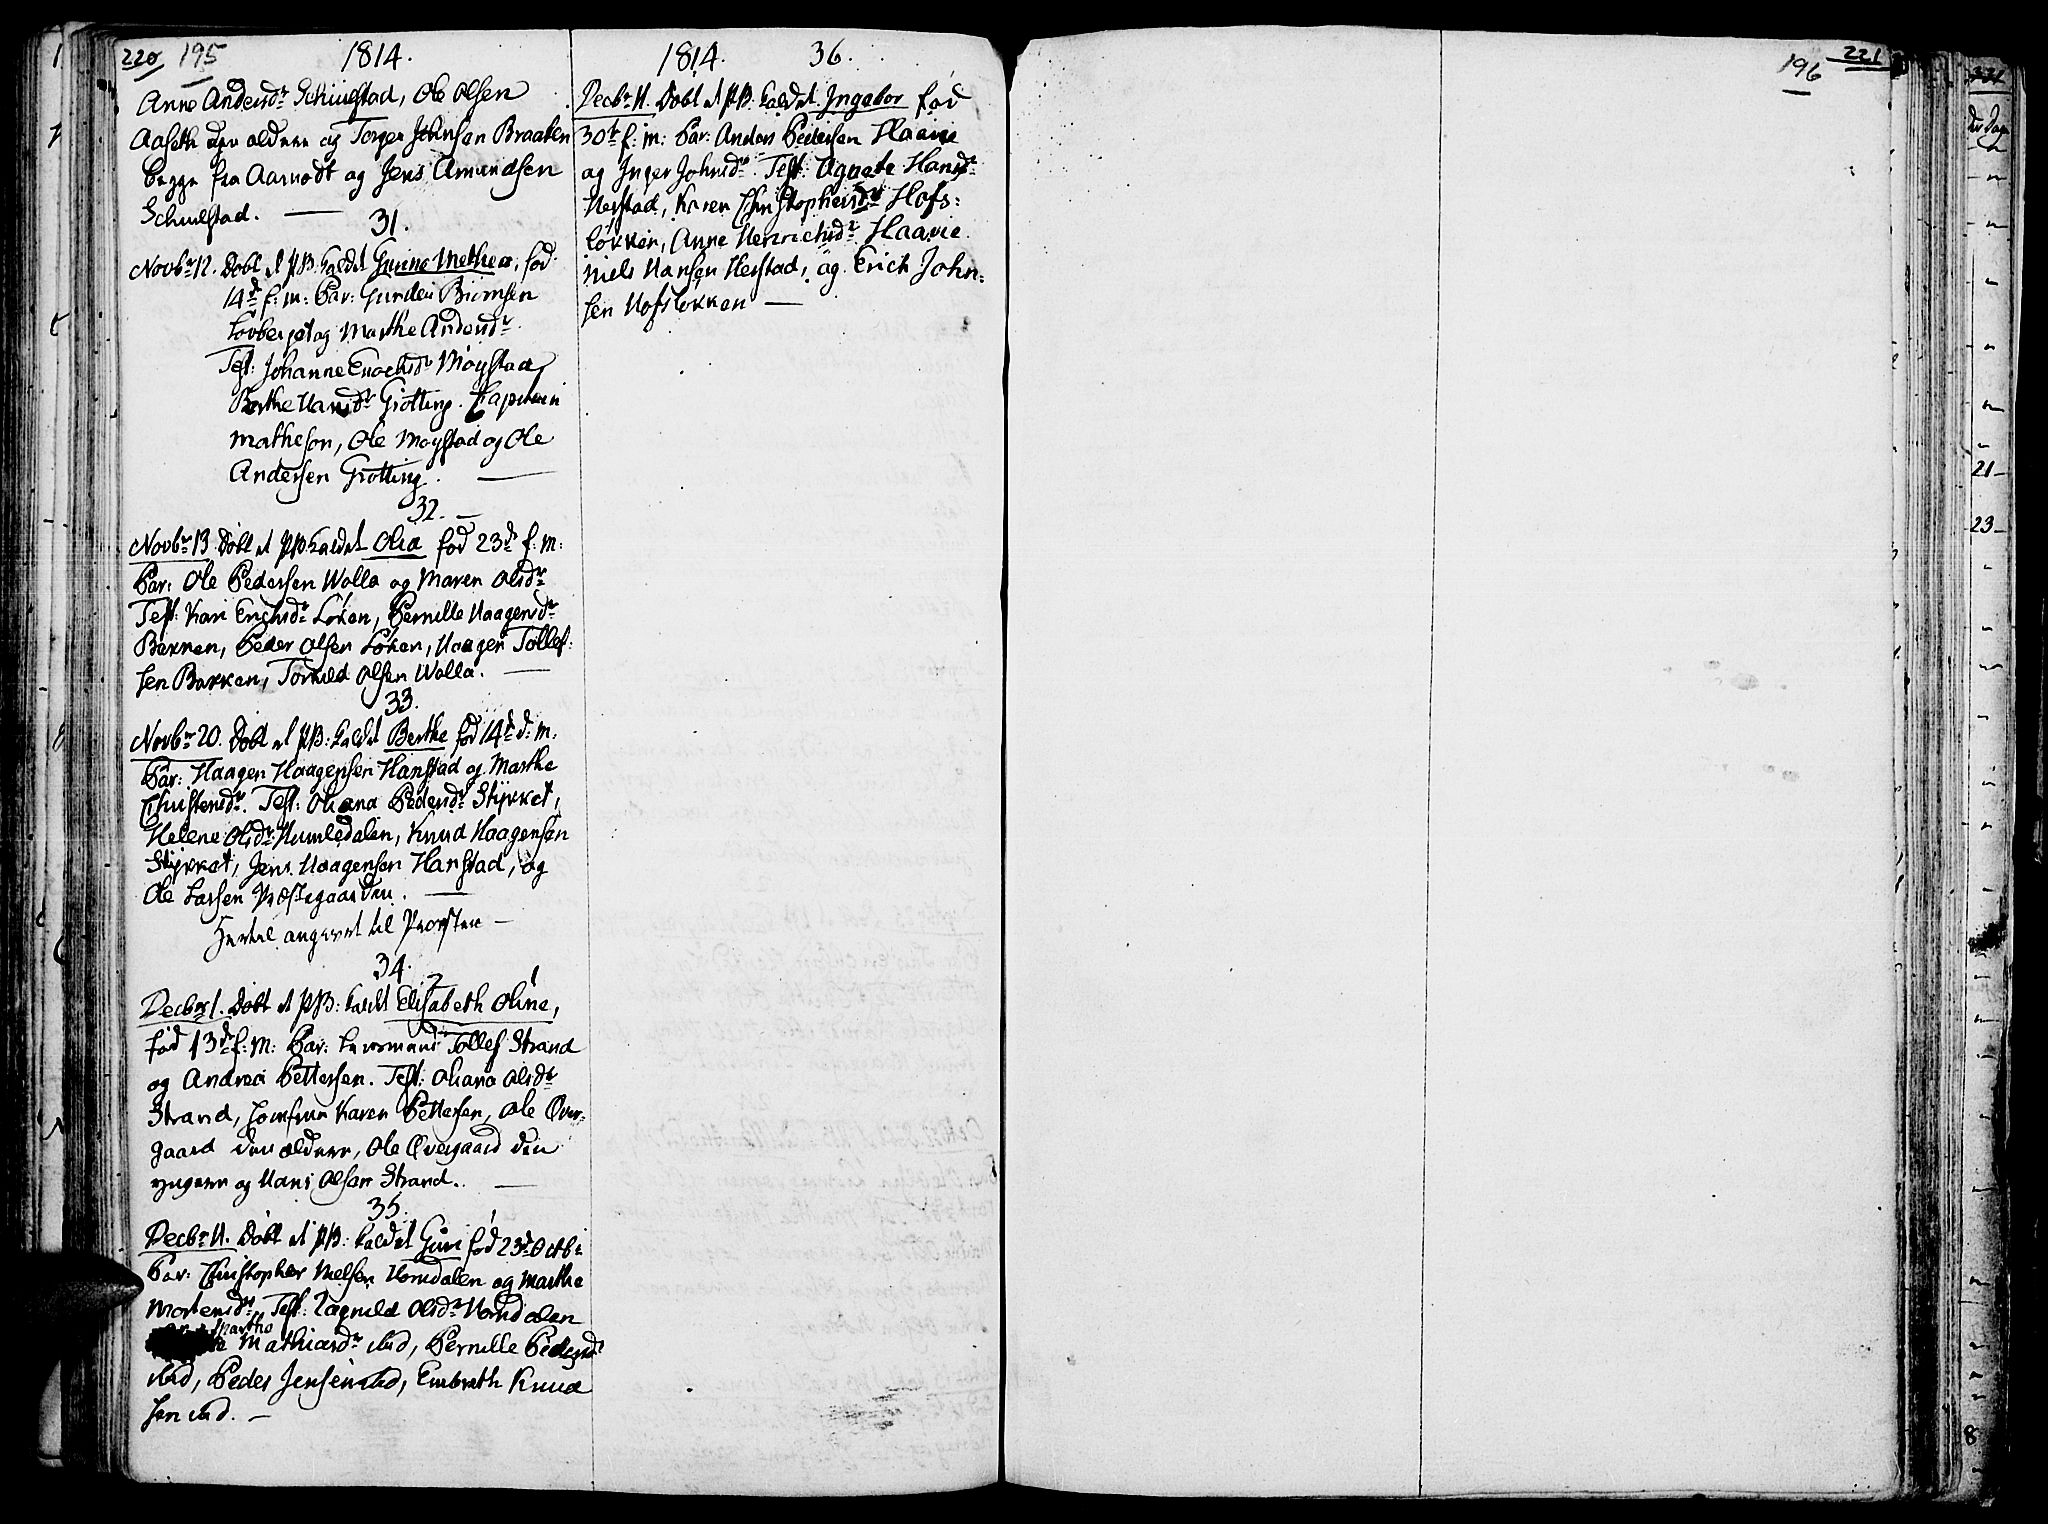 220 195 1814.
Anne Andersdr Schulstad, Ole Olsen
Aaseth den ældere og Torger Johnsen Braaten
begge fra Aamodt og Jens Amundsen
Schulstad. —
31.
Novbr 12. Døbt et PB: kaldet Gunne Mathea, fød
14d f: m: Par: Gunder Biørnsen
Løvberget og Marthe Andersdr
Test: Johanne Enochsdr Møystad,
Berthe Hansdr Grøtting. Capitain
Matheson, Ole Møystad og Ole
Andersen Grøtting. —
32. —
Novbr 13. Døbt et PB: kaldet Olia fød 23d f: m:
Par: Ole Pedersen Wolla og Maren Olsdr
Test: Kari Erichsdr Løken, Pernille Haagensdr
Bakken, Peder Olsen Løken, Haagen Tollef:
sen Bakken, Torkild Olsen Wolla. —
33.
Novbr 20. Døbt et PB: kaldet Berthe fød 14d d: m:
Par: Haagen Haagensen Hanstad og Marthe
Christensdr. Test: Oliana Pedersdr Stykket,
Helene Olsdr Humledalen, Knud Haagensen
Stykket, Jens Haagensen Hanstad, og
Ole Larsen Præstegaarden. —
Hertil angivet til Provsten —
34.
Decbr 1. Døbt et PB: kaldt Elisabeth Oline,
fød 13d f: M: Par: Tollef Strand
og Andrea Pettersen. Test: Oliana Olsdr
Strand, Jomfrue Karen Pettersen, Ole Øver-
gaard den ældere, Ole Øvergaard den
yngere og Hans Olsen Strand. —
35.
Decbr 11. Døbt et PB: kaldet Guri fød 23d Octbr
Par: Christopher Nielsen Horndalen og Marthe
Mortensdr. Test: Ragnild Olsdr Horndalen
Marthe
Mathiasdr ibid, Pernille Pedersdr
ibid, Peder Jensen ibid, Embreth Knud
sen ibid. —
1814. 36.
Decbr 11. Døbt et PB: kaldet Ingebor fød
30te f: m: Par: Anders Pedersen Haavie
og Inger Johnsdr. Test: Agnete Hansdr
Herstad, Karen Christophersdr Hofs:
løkken, Anne Henrichsdr Haavie
Niels Hansen Herstad, og Erich John:
sen Hofsløkken —
196 221
21
23
8